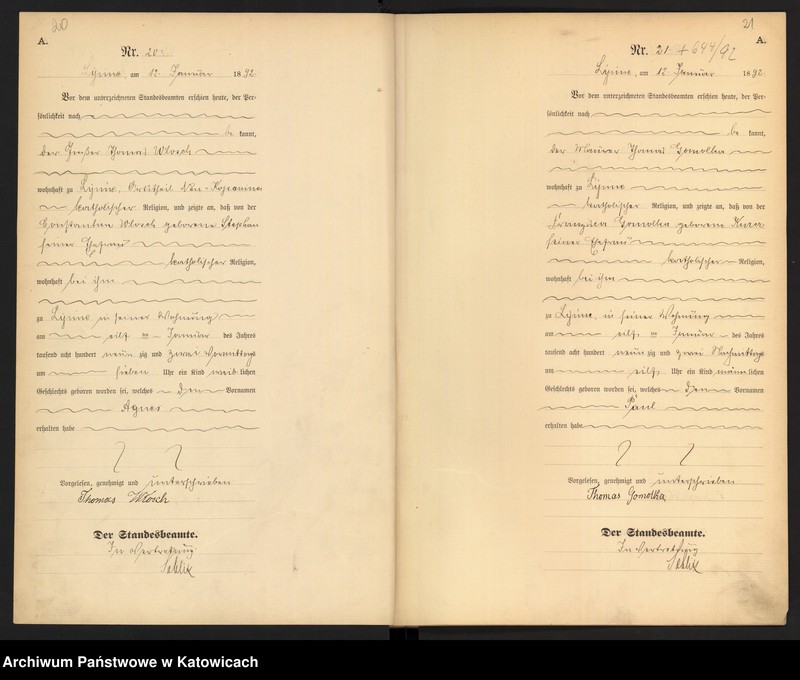 20
A.
Nr. 20.
am 12 Januar 1892.
Vor dem unterzeichneten Standesbeamten erschien heute, der Per-
sönlichkeit nach
be kannt,
der Thomas Wlosch
wohnhaft zu
katholischer Religion, und zeigte an, daß von der
Constantine Wlosch geborene Stephan
seiner Ehefrau
katholischer Religion,
wohnhaft bei ihm
zu in seiner Wohnung
am eilf ten Januar des Jahres
tausend acht hundert neun zig und zwei Vormittags
um sieben Uhr ein Kind weib lichen
Geschlechts geboren worden sei, welches den Vornamen
Agnes
erhalten habe
Vorgelesen, genehmigt und unterschrieben
Thomas Wlosch
Der Standesbeamte.
In Vertretung
21
A.
Nr. 21 + 644/92
am 12 Januar 1892.
Vor dem unterzeichneten Standesbeamten erschien heute, der Per-
sönlichkeit nach
be kannt,
der Maurer Thomas Gomolka
wohnhaft zu
katholischer Religion, und zeigte an, daß von der
Gomolka geborene
seiner Ehefrau
katholischer Religion,
wohnhaft bei ihm
zu in seiner Wohnung
am eilf ten Januar des Jahres
tausend acht hundert neun zig und zwei Nachmittags
um eilf Uhr ein Kind männ lichen
Geschlechts geboren worden sei, welches den Vornamen
Paul
erhalten habe
Vorgelesen, genehmigt und unterschrieben
Thomas Gomolka
Der Standesbeamte.
In Vertretung
Archiwum Państwowe w Katowicach